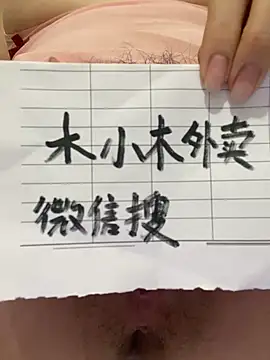 木小木外卖
微信搜